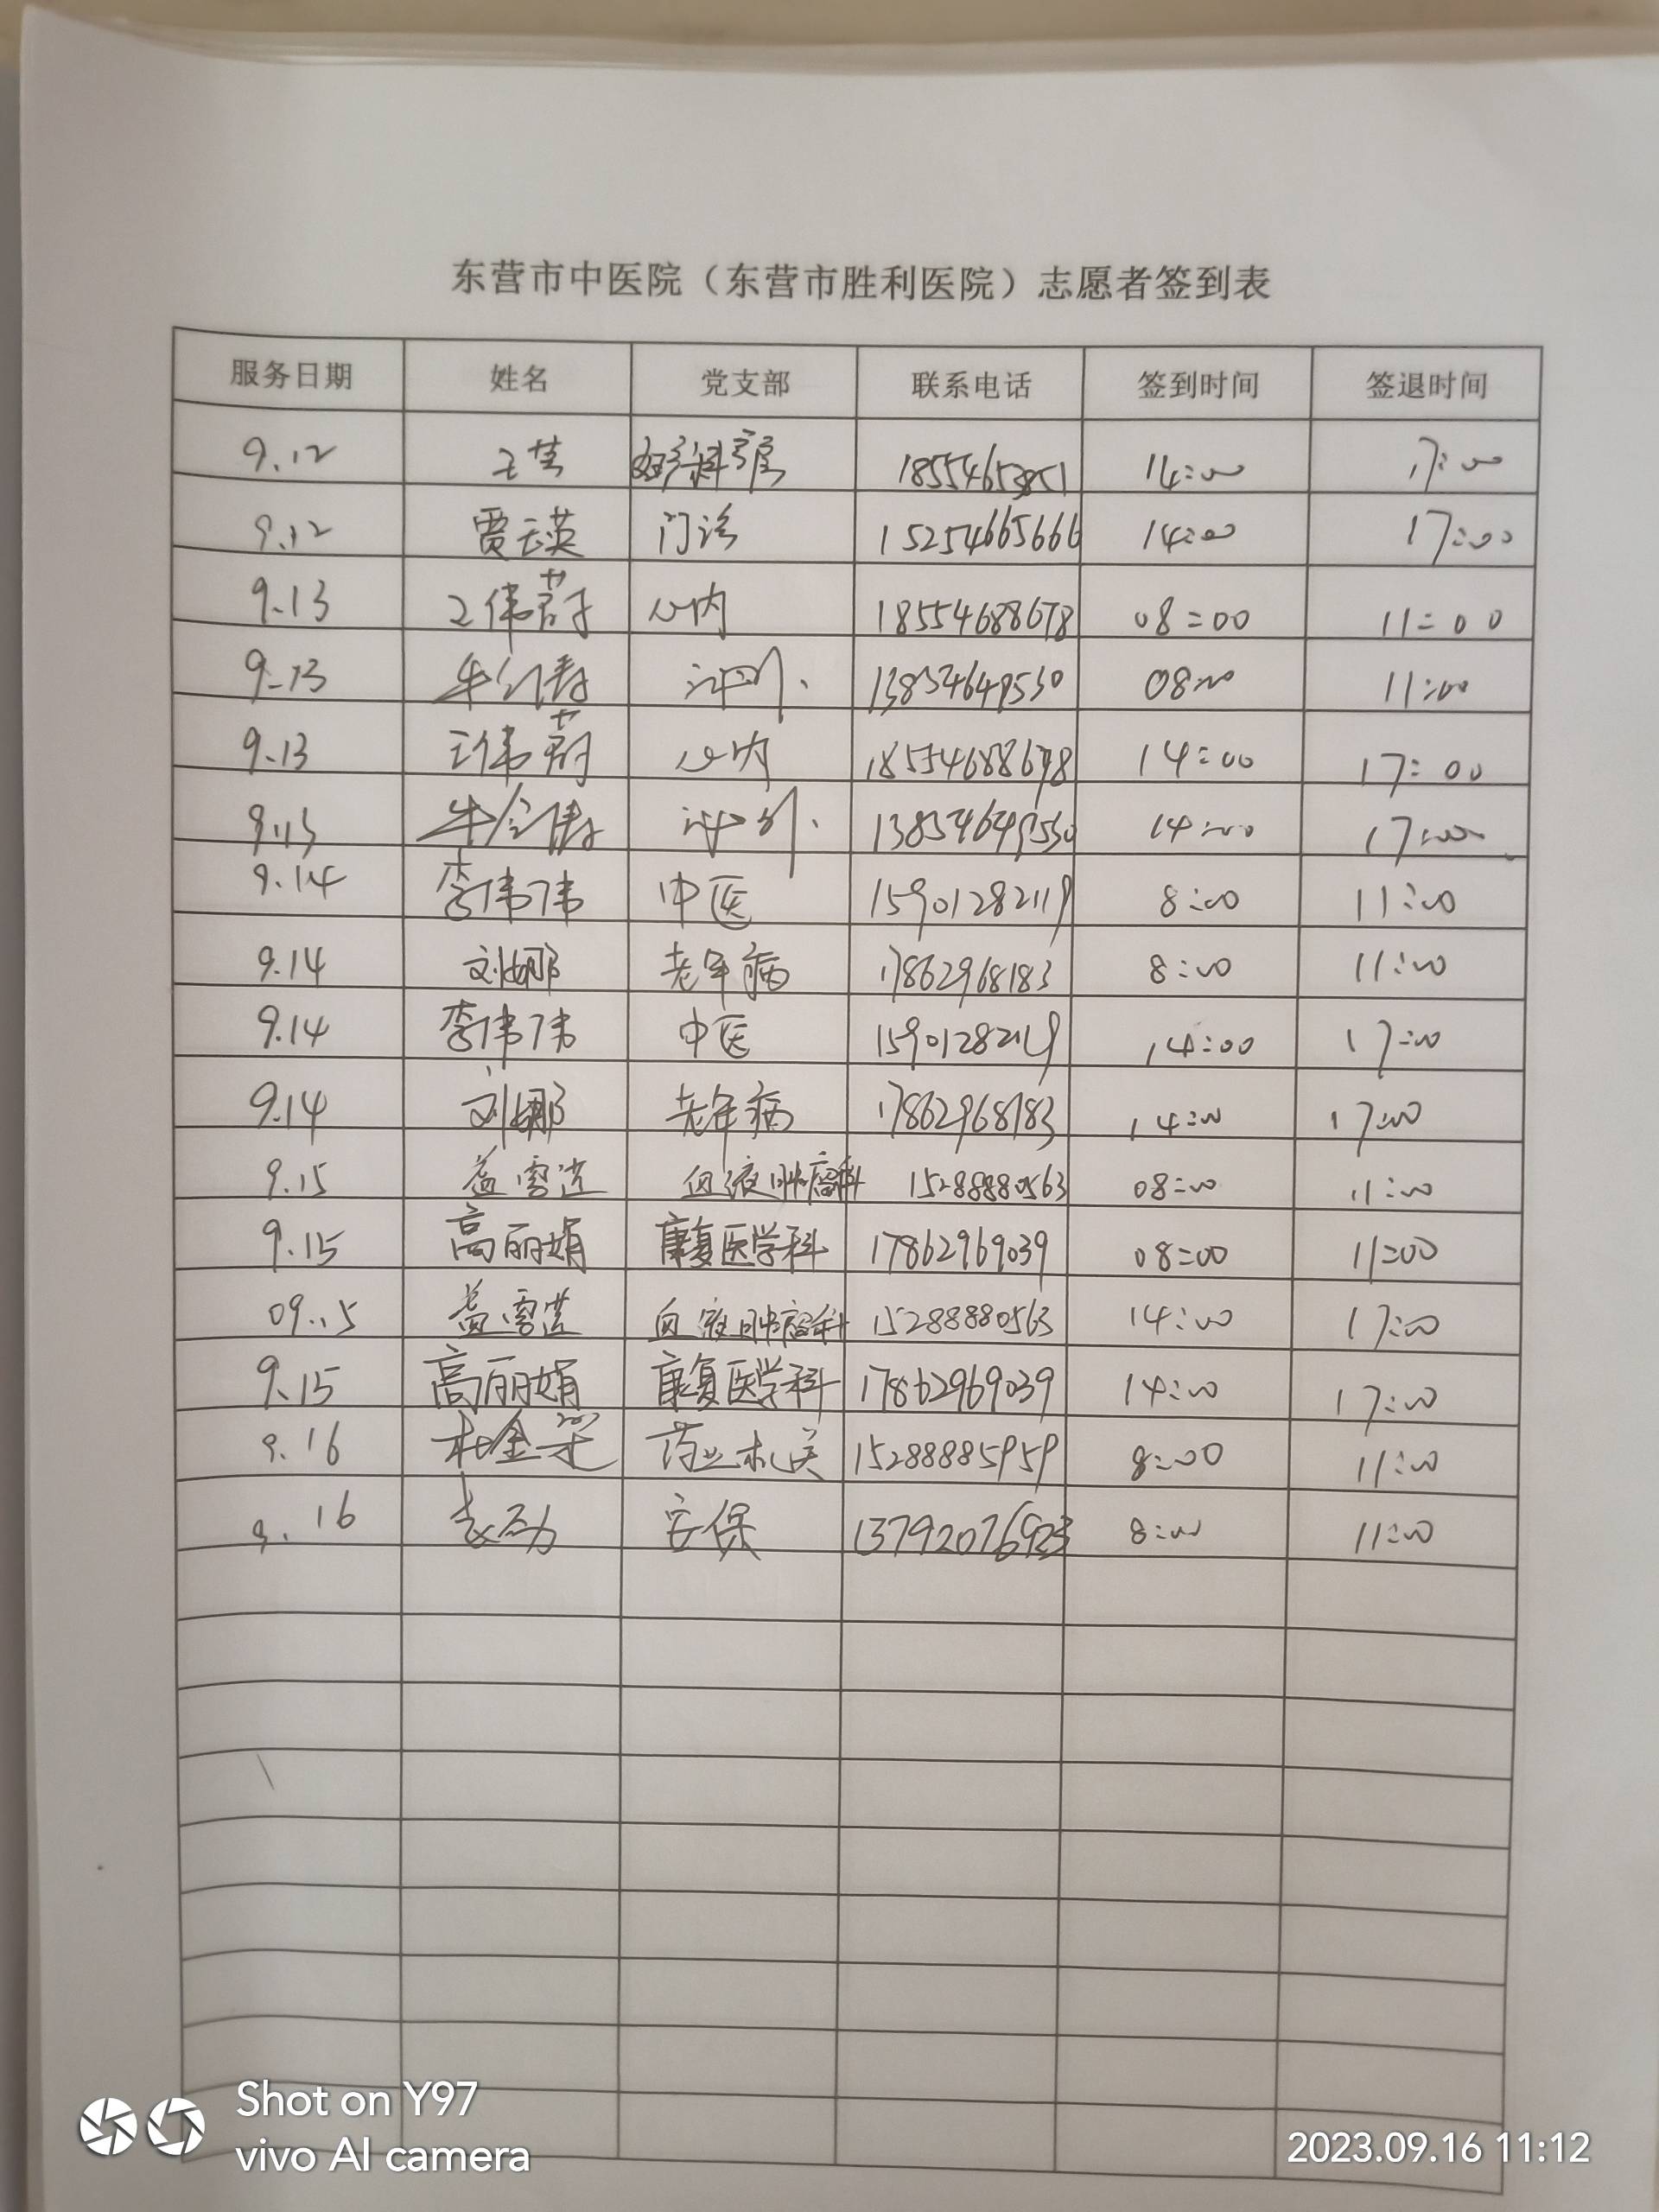 东营市中医院（东营市胜利医院）志愿者签到表
服务日期 姓名 党支部 联系电话 签到时间 签退时间
9.12 王芸 14:00 17:00
9.12 贾云英 门诊 15254665666 14:00 17:00
9.13 王伟 心内 18554688678 08:00 11:00
9.13 牛 08:00 11:00
9.13 王伟 心内 18554688678 14:00 17:00
9.13 牛 14:00 17:00
9.14 李伟伟 中医 15901282119 8:00 11:00
9.14 刘娜 老年病 17862968183 8:00 11:00
9.14 李伟伟 中医 15901282119 14:00 17:00
9.14 刘娜 老年病 17862968183 14:00 17:00
9.15 盖雪莲 血液肿瘤科 15288880563 08:00 11:00
9.15 高丽娟 康复医学科 17862969039 08:00 11:00
09.15 盖雪莲 血液肿瘤科 15288880563 14:00 17:00
9.15 高丽娟 康复医学科 17862969039 14:00 17:00
9.16 杜金梁 药业机关 15288885959 8:00 11:00
9.16 安保 8:00 11:00
Shot on Y97
vivo AI camera
2023.09.16 11:12